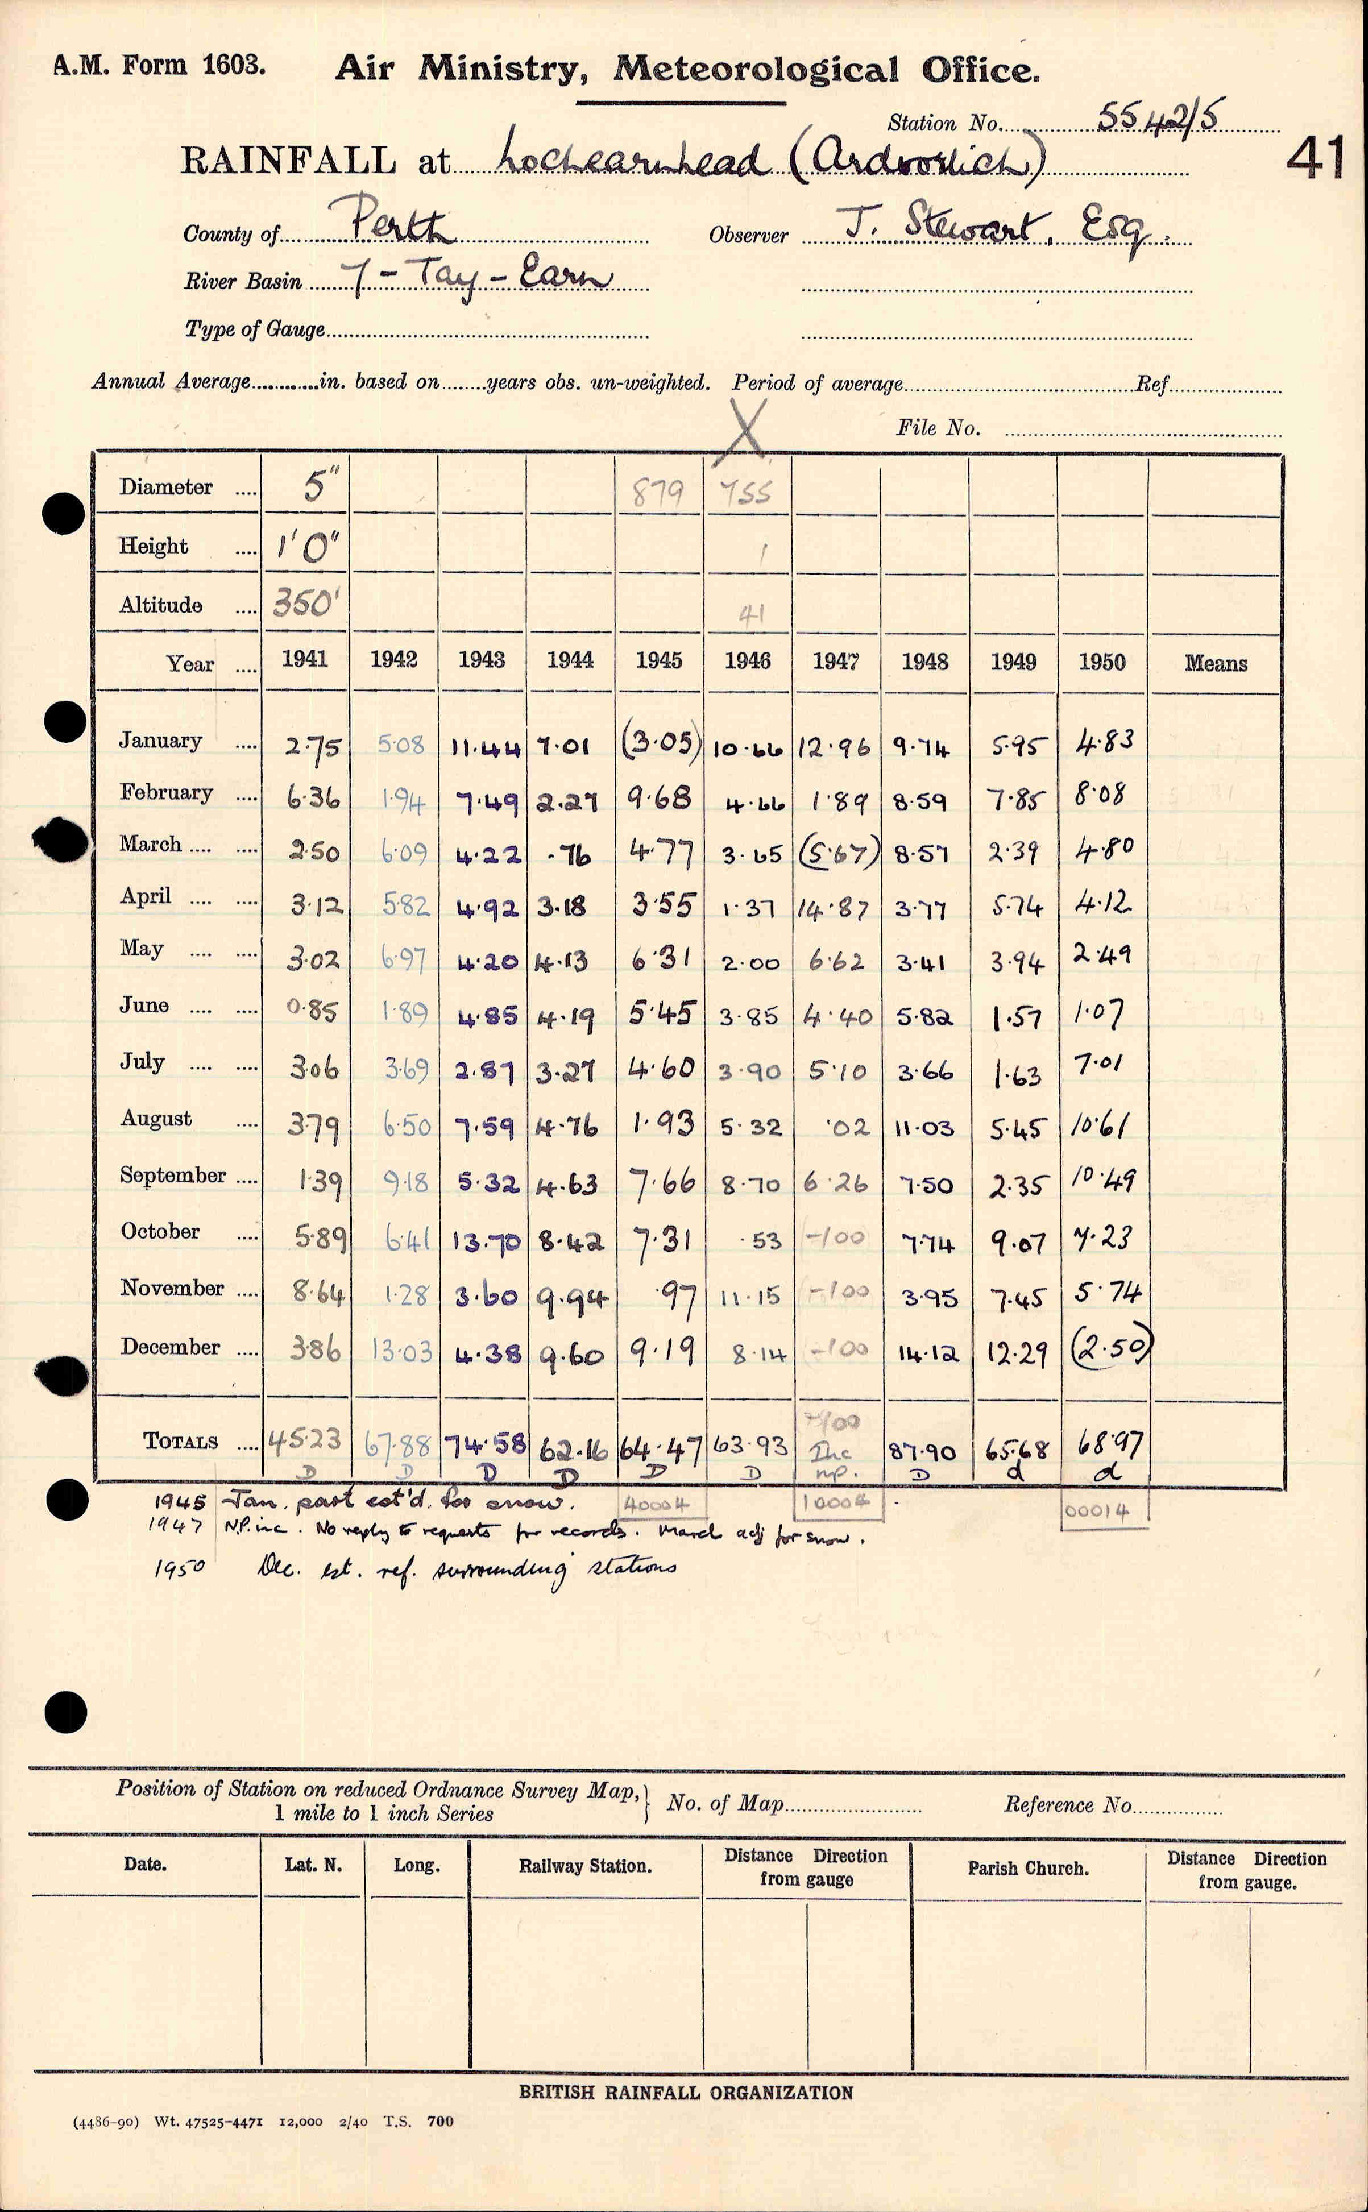 A.M. Form 1603. Air Ministry, Meteorological Office.
Station No. 5542/5
41
RAINFALL at Lochearnhead (Ardvorlich)
County of Perth Observer J. Stewart, Esq.
River Basin 7 - Tay - Earn
Type of Gauge
Annual Average in. based on years obs. un-weighted. Period of average Ref.
X File No.
Diameter 5" 879 755
Height 1'0" 1
Altitude 350' 41
Year 1941 1942 1943 1944 1945 1946 1947 1948 1949 1950 Means
January 2.75 5.08 11.44 7.01 (3.05) 10.66 12.96 9.74 5.95 4.83
February 6.36 1.94 7.49 2.27 9.68 4.66 1.89 8.59 7.85 8.08
March 2.50 6.09 4.22 .76 4.77 3.65 (5.67) 8.57 2.39 4.80
April 3.12 5.82 4.92 3.18 3.55 1.37 14.87 3.77 5.74 4.12
May 3.02 6.97 4.20 4.13 6.31 2.00 6.62 3.41 3.94 2.49
June 0.85 1.89 4.85 4.19 5.45 3.85 4.40 5.82 1.57 1.07
July 3.06 3.69 2.87 3.27 4.60 3.90 5.10 3.66 1.63 7.01
August 3.79 6.50 7.59 4.76 1.93 5.32 .02 11.03 5.45 10.61
September 1.39 9.18 5.32 4.63 7.66 8.70 6.26 7.50 2.35 10.49
October 5.89 6.41 13.70 8.42 7.31 .53 -100 7.74 9.07 7.23
November 8.64 1.28 3.60 9.94 .97 11.15 -100 3.95 7.45 5.74
December 3.86 13.03 4.38 9.60 9.19 8.14 -100 14.12 12.29 (2.50)
-100
TOTALS 45.23 67.88 74.58 62.16 64.47 63.93 Inc 87.90 65.68 68.97
D D D D D D np. D d d
1945 Jan. part est'd. for snow. 40004 10004 00014
1947 N.P. inc. No reply to requests for records. March adj for snow.
1950 Dec. est. ref. surrounding stations
Position of Station on reduced Ordnance Survey Map, } No. of Map Reference No.
1 mile to 1 inch Series
Date. Lat. N. Long. Railway Station. Distance Direction from gauge Parish Church. Distance Direction from gauge.
BRITISH RAINFALL ORGANIZATION
(4486-90) Wt. 47525-4471 12,000 2/40 T.S. 700